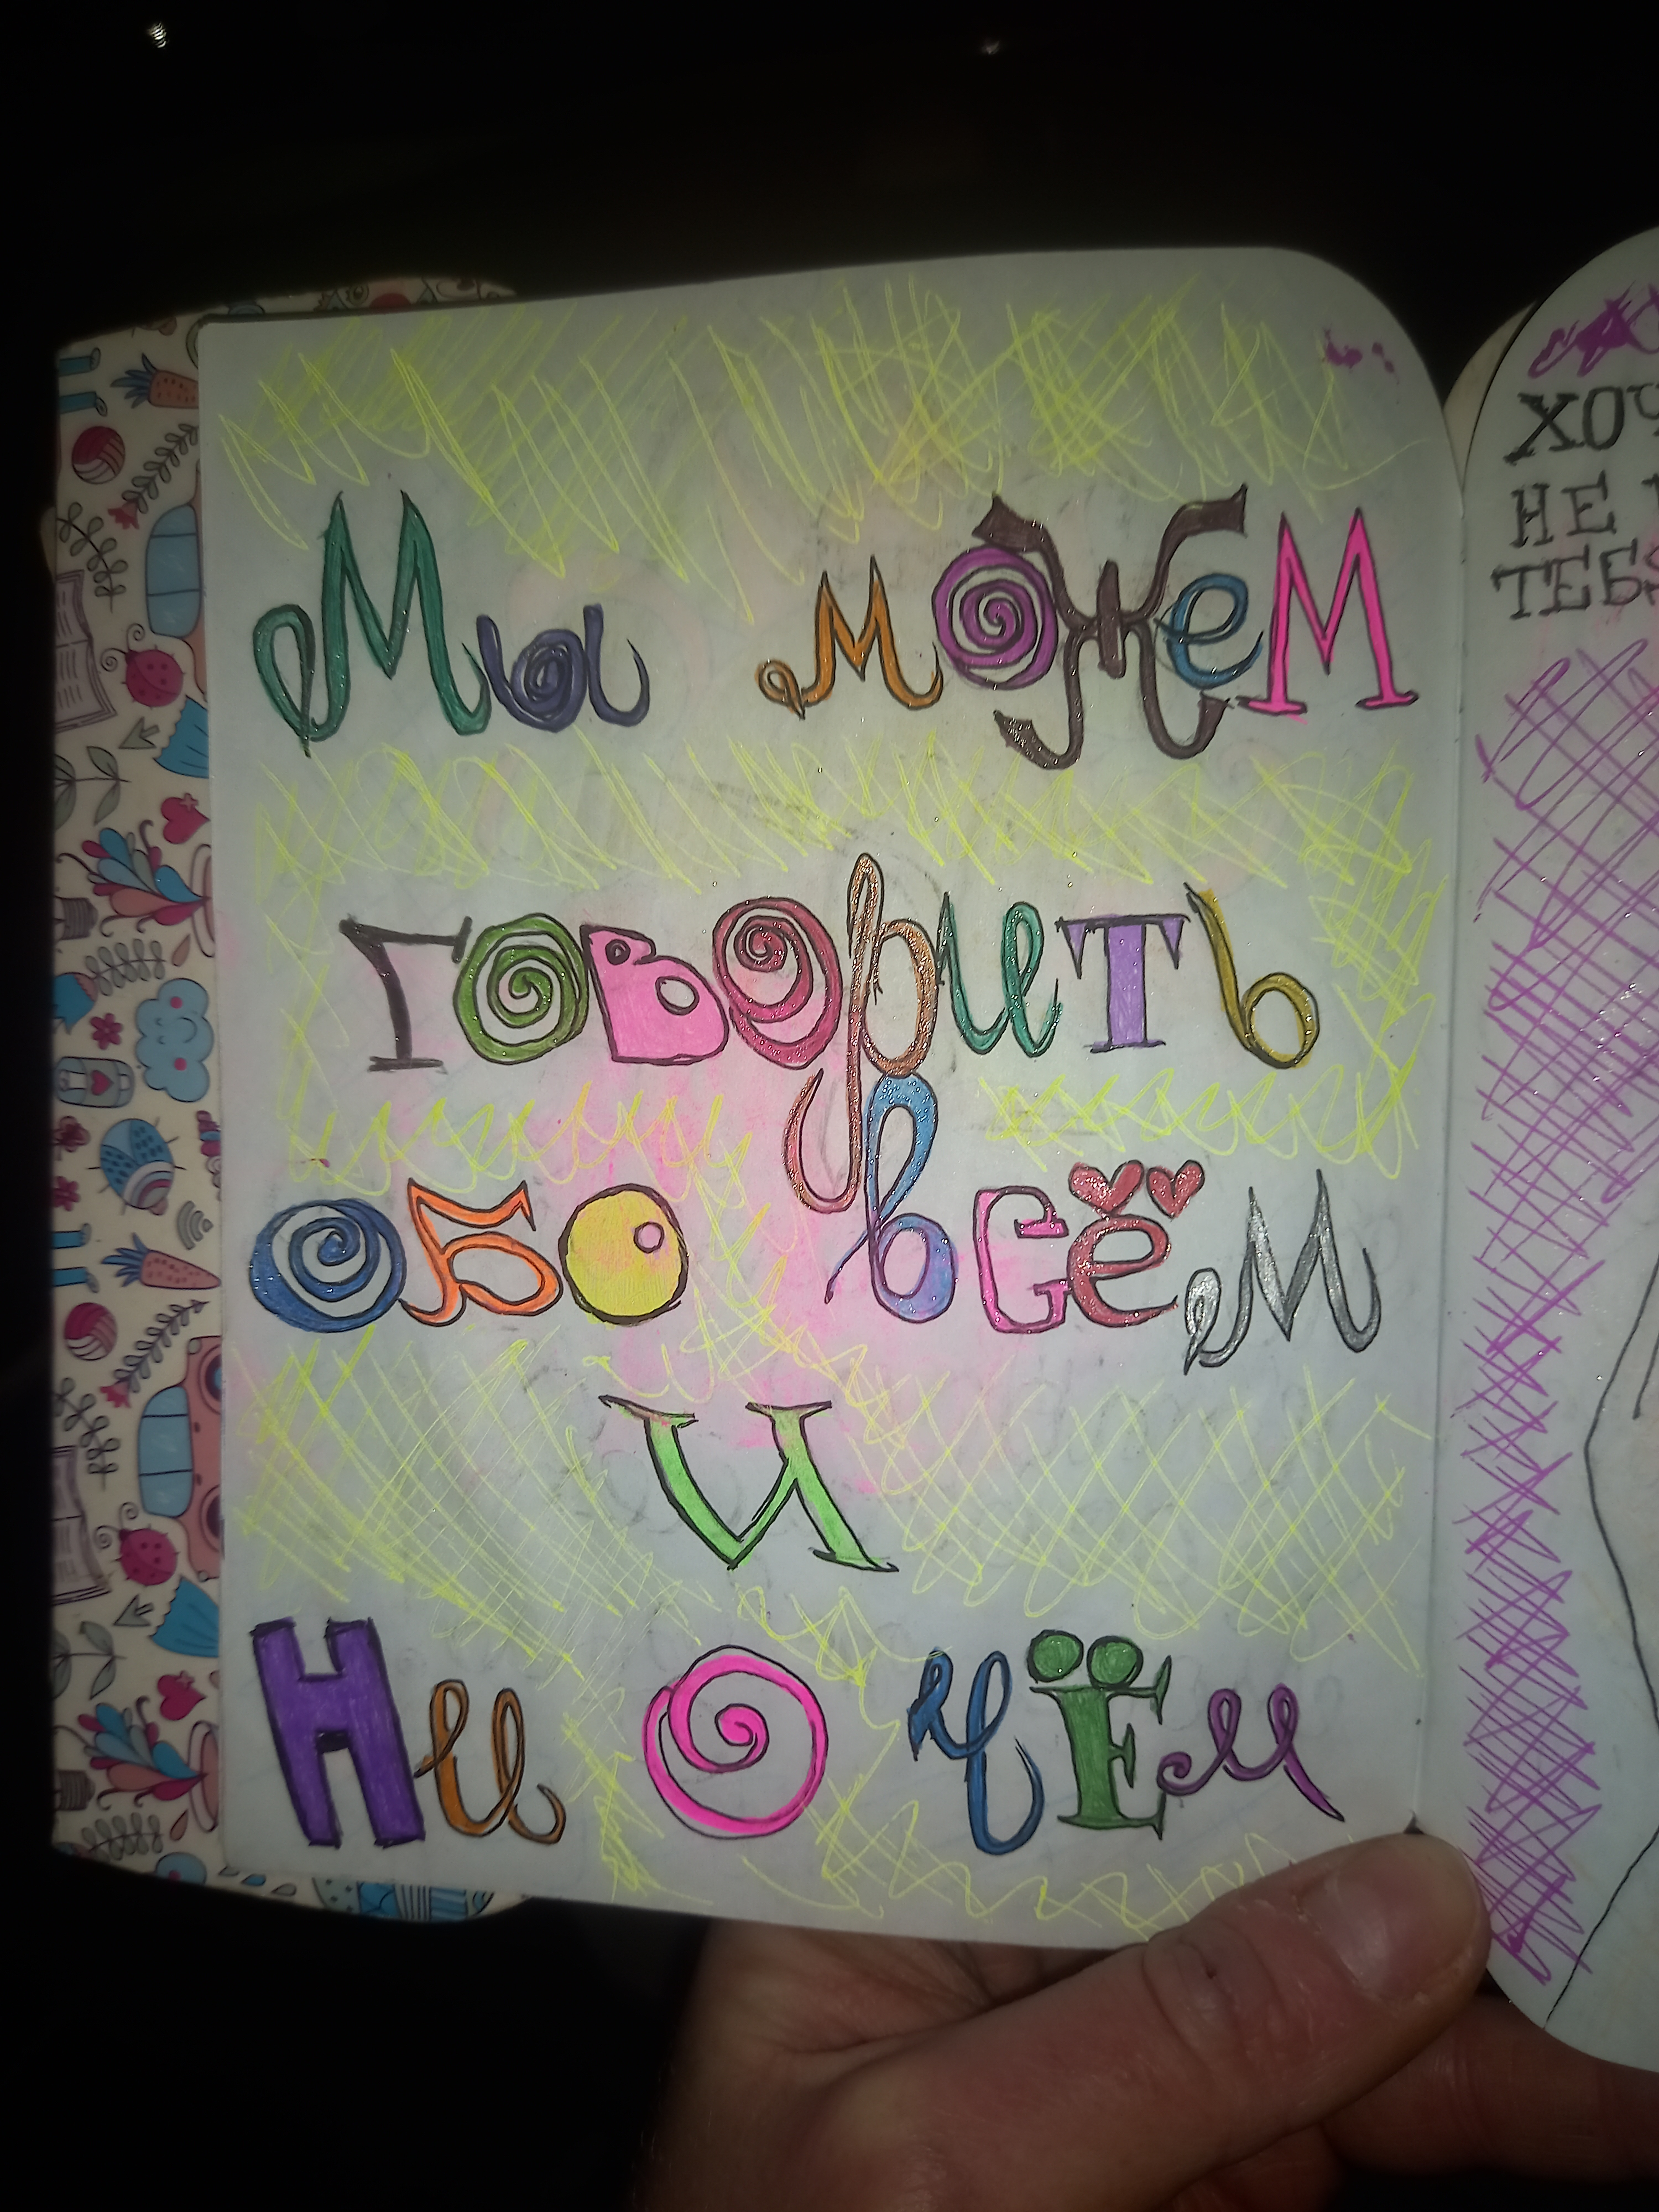 Мы можем
говорить
обо всём
и
Ни о чём
НЕ